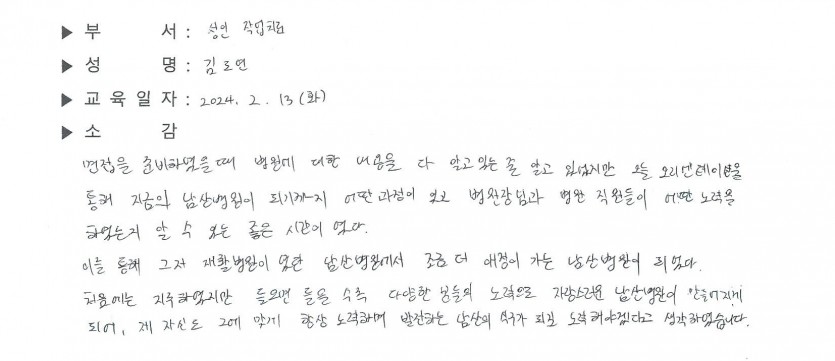 ▶ 부 서 : 성인 작업치료
▶ 성 명 : 김도연
▶ 교육일자 : 2024. 2. 13 (화)
▶ 소 감
면접을 준비하였을 때 병원에 대한 내용을 다 알고있는 줄 알고 있었지만 오늘 오리엔테이션을
통해 지금의 남산병원이 되기까지 어떤 과정이 있고 병원장님과 병원 직원들이 어떤 노력을
하였는지 알 수 있는 좋은 시간이 었다.
이를 통해 그저 재활병원이 였던 남산병원에서 조금 더 애정이 가는 남산병원이 되었다.
처음에는 지루하였지만 들으면 들을 수록 다양한 분들의 노력으로 자랑스러운 남산병원이 만들어지게
되어, 제 자신도 그에 맞게 항상 노력하며 발전하는 남산의 식구가 되길 노력해야겠다고 생각하였습니다.